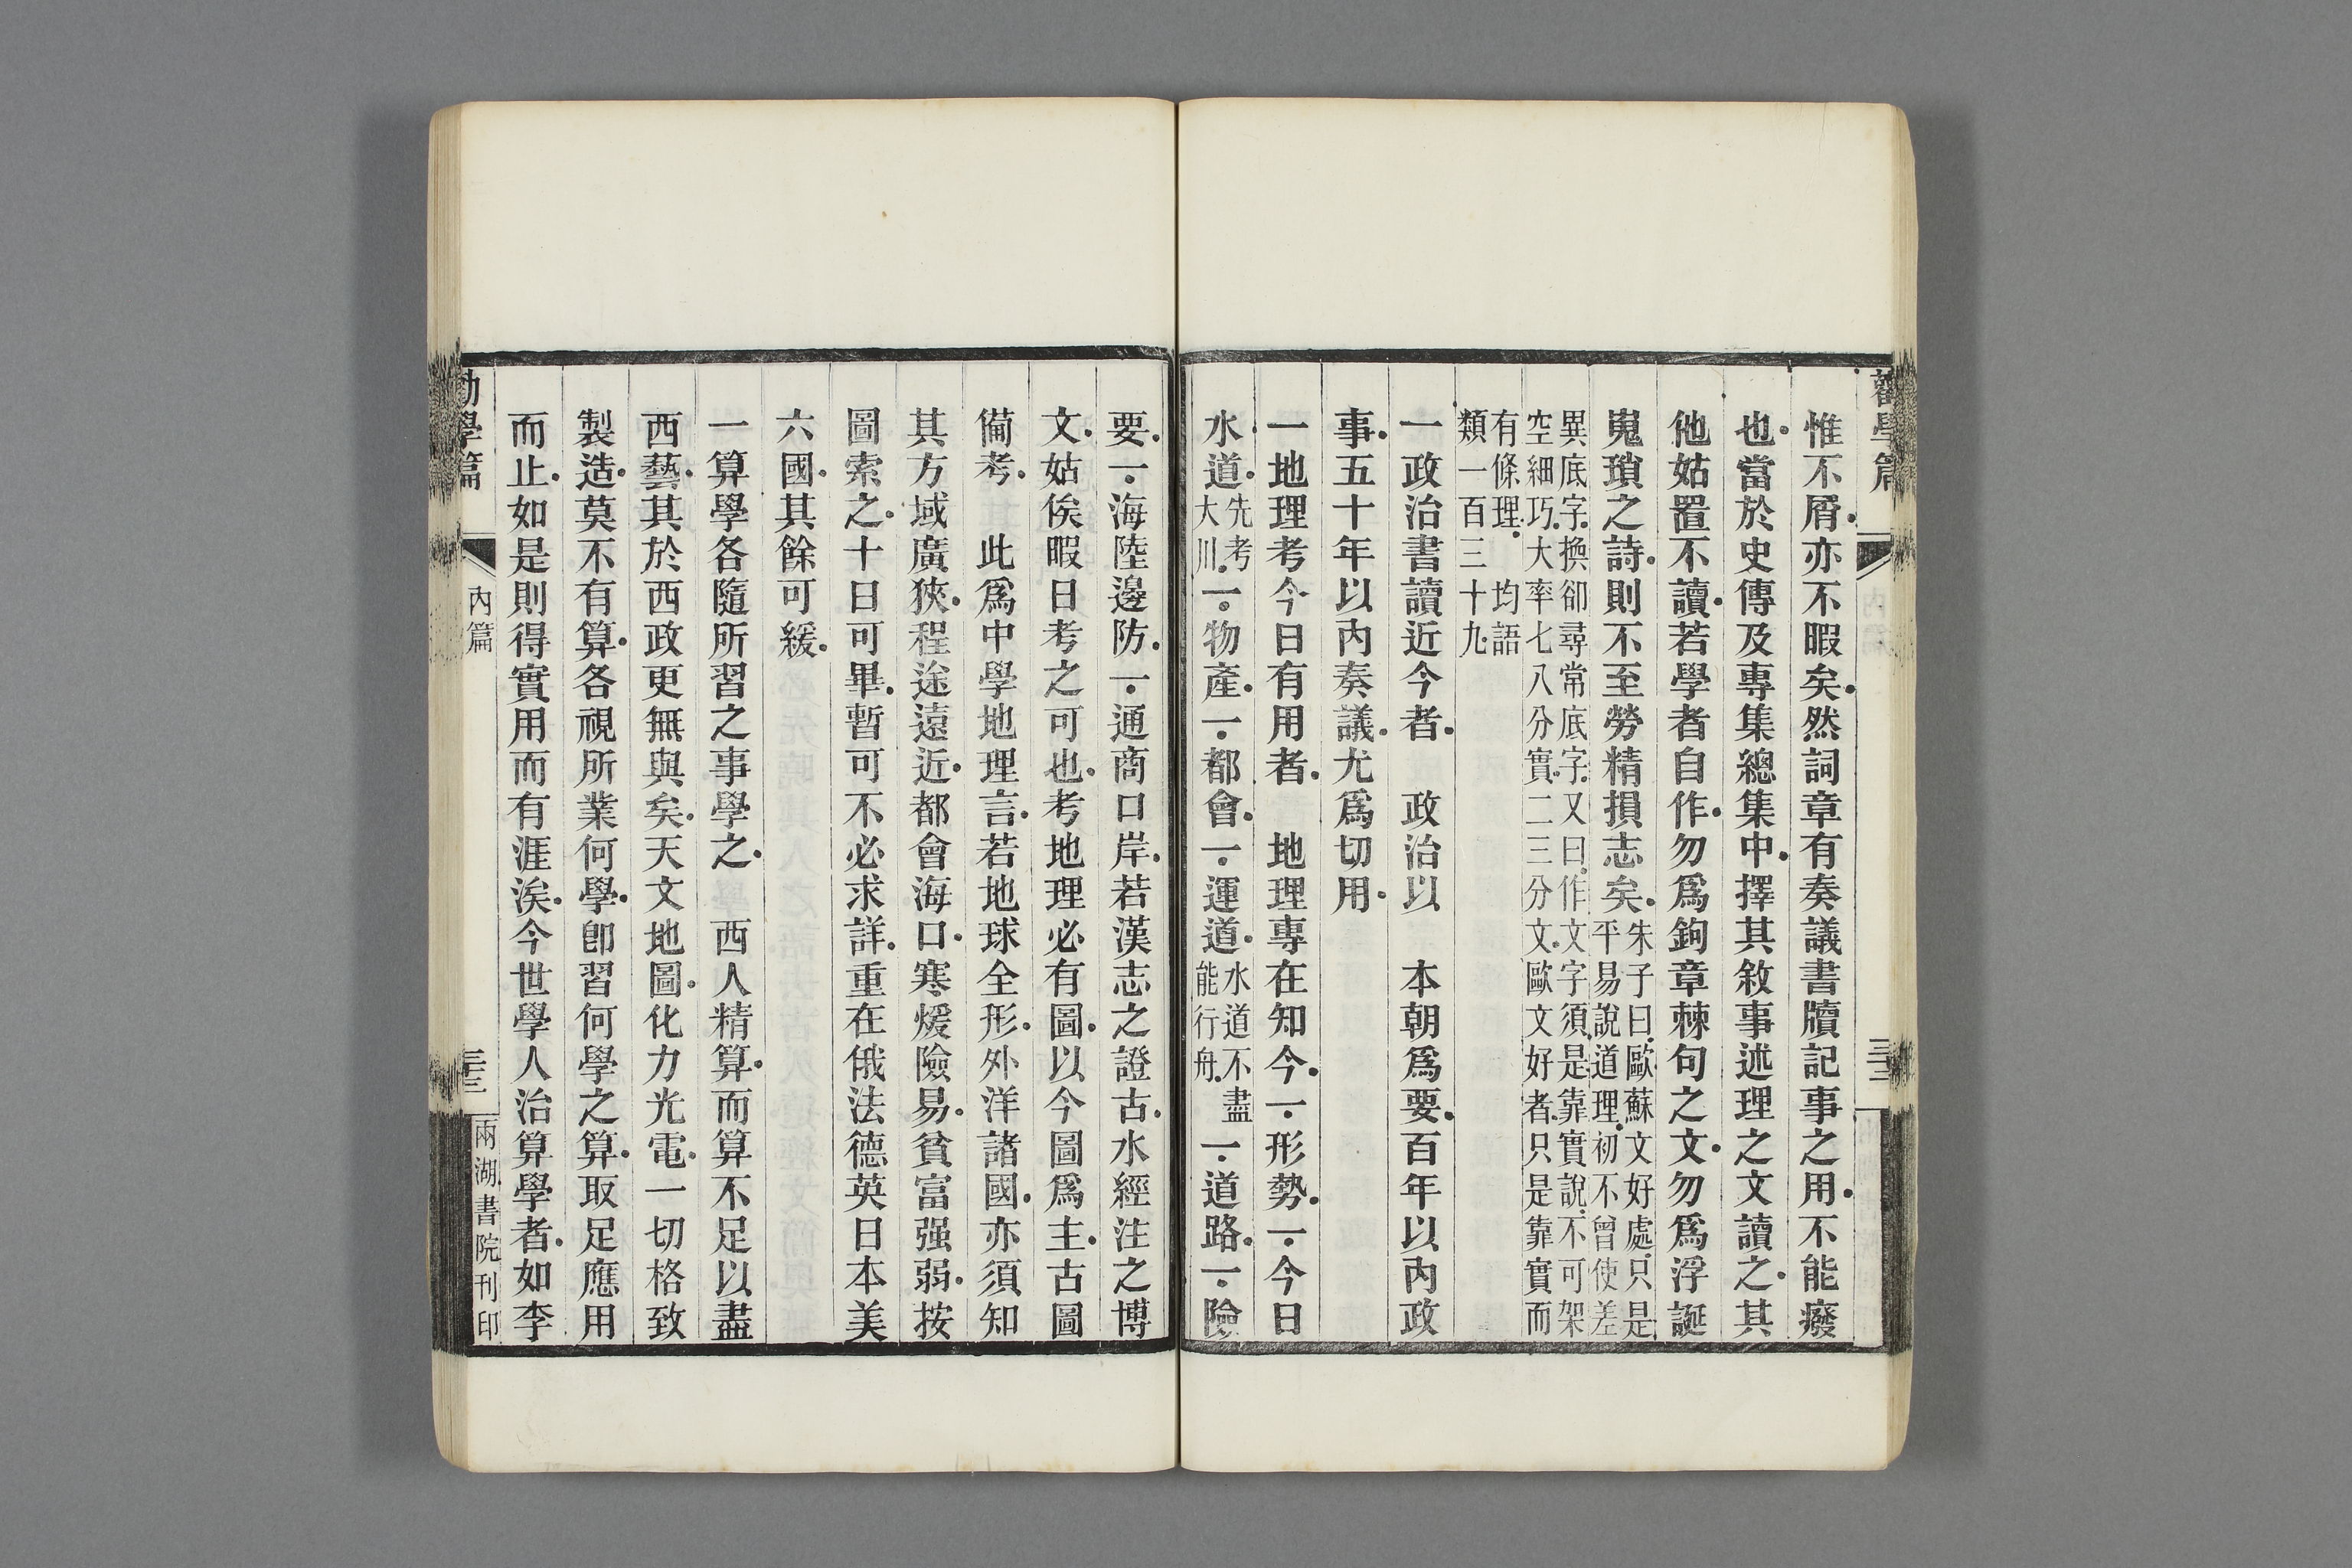 勸學篇
惟不屑亦不暇矣然詞章有奏議書牘記事之用不能癈
也當於史傳及專集總集中擇其敘事述理之文讀之其
他姑置不讀若學者自作勿爲鉤章棘句之文勿爲浮誕
嵬瑣之詩則不至勞精損志矣朱子曰歐蘇文好處只是
平易說道理初不曾使差
異底字換卻尋常底字又曰作文字須是靠實說不可架
空細巧大率七八分實二三分文歐文好者只是靠實而
有條理 均語
類一百三十九
一政治書讀近今者 政治以 本朝爲要百年以內政
事五十年以內奏議尤爲切用
一地理考今日有用者 地理專在知今一形勢一今日
水道先考
大川一物產一都會一運道水道不盡
能行舟一道路一險
要一海陸邊防一通商口岸若漢志之證古水經注之博
文姑俟暇日考之可也考地理必有圖以今圖爲主古圖
備考 此爲中學地理言若地球全形外洋諸國亦須知
其方域廣狹程途遠近都會海口寒煖險易貧富强弱按
圖索之十日可畢暫可不必求詳重在俄法德英日本美
六國其餘可緩
一算學各隨所習之事學之 西人精算而算不足以盡
西藝其於西政更無與矣天文地圖化力光電一切格致
製造莫不有算各視所業何學卽習何學之算取足應用
而止如是則得實用而有涯涘今世學人治算學者如李
勸學篇
內篇
三十三
兩湖書院刊印